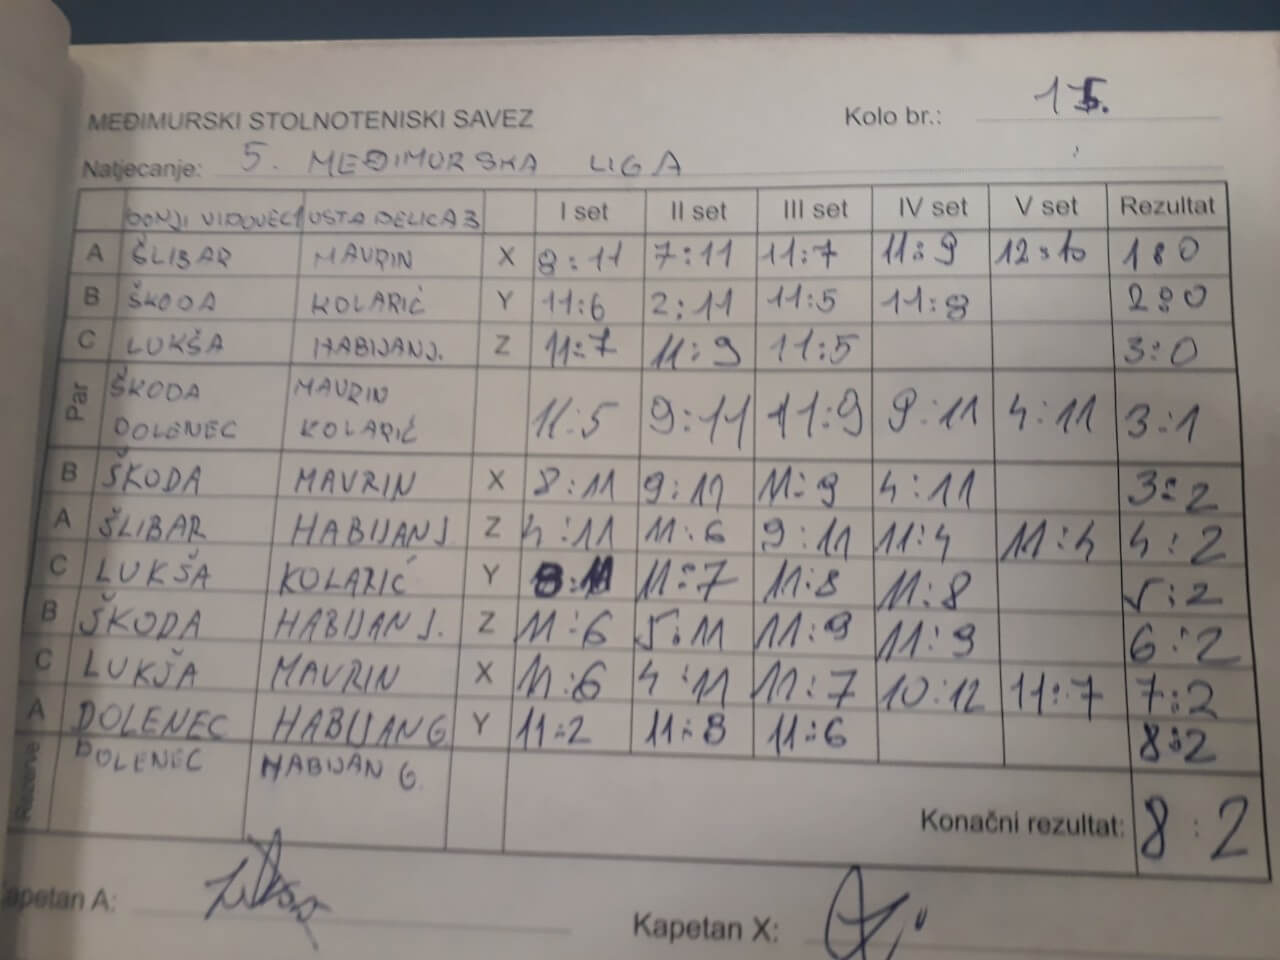 MEĐIMURSKI STOLNOTENISKI SAVEZ Kolo br.: 15.
Natjecanje: 5. MEĐIMURSKA LIGA
DONJI VIDOVEC 1 USTA DELICA 3 I set II set III set IV set V set Rezultat
A ŠLIBAR MAVRIN X 8:11 7:11 11:7 11:9 12:10 1:0
B ŠKODA KOLARIĆ Y 11:6 2:11 11:5 11:8 2:0
C LUKŠA HABIJAN J. Z 11:7 11:9 11:5 3:0
Par ŠKODA MAVRIN
DOLENEC KOLARIĆ 11:5 9:11 11:9 9:11 4:11 3:1
B ŠKODA MAVRIN X 8:11 9:11 11:9 4:11 3:2
A ŠLIBAR HABIJAN J Z 4:11 11:6 9:11 11:4 11:4 4:2
C LUKŠA KOLARIĆ Y 8:11 11:7 11:8 11:8 5:2
B ŠKODA HABIJAN J. Z 11:6 5:11 11:9 11:9 6:2
C LUKŠA MAVRIN X 11:6 4:11 11:7 10:12 11:7 7:2
A DOLENEC HABIJAN G Y 11:2 11:8 11:6 8:2
Rezerve DOLENEC HABIJAN G.
Konačni rezultat: 8:2
Kapetan A:
Kapetan X: